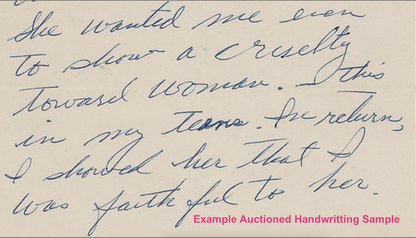 She wanted me even
to show a cruselty
toward woman. – this
in my teens. In return,
I showed her that I
was faithful to her.
Example Auctioned Handwritting Sample